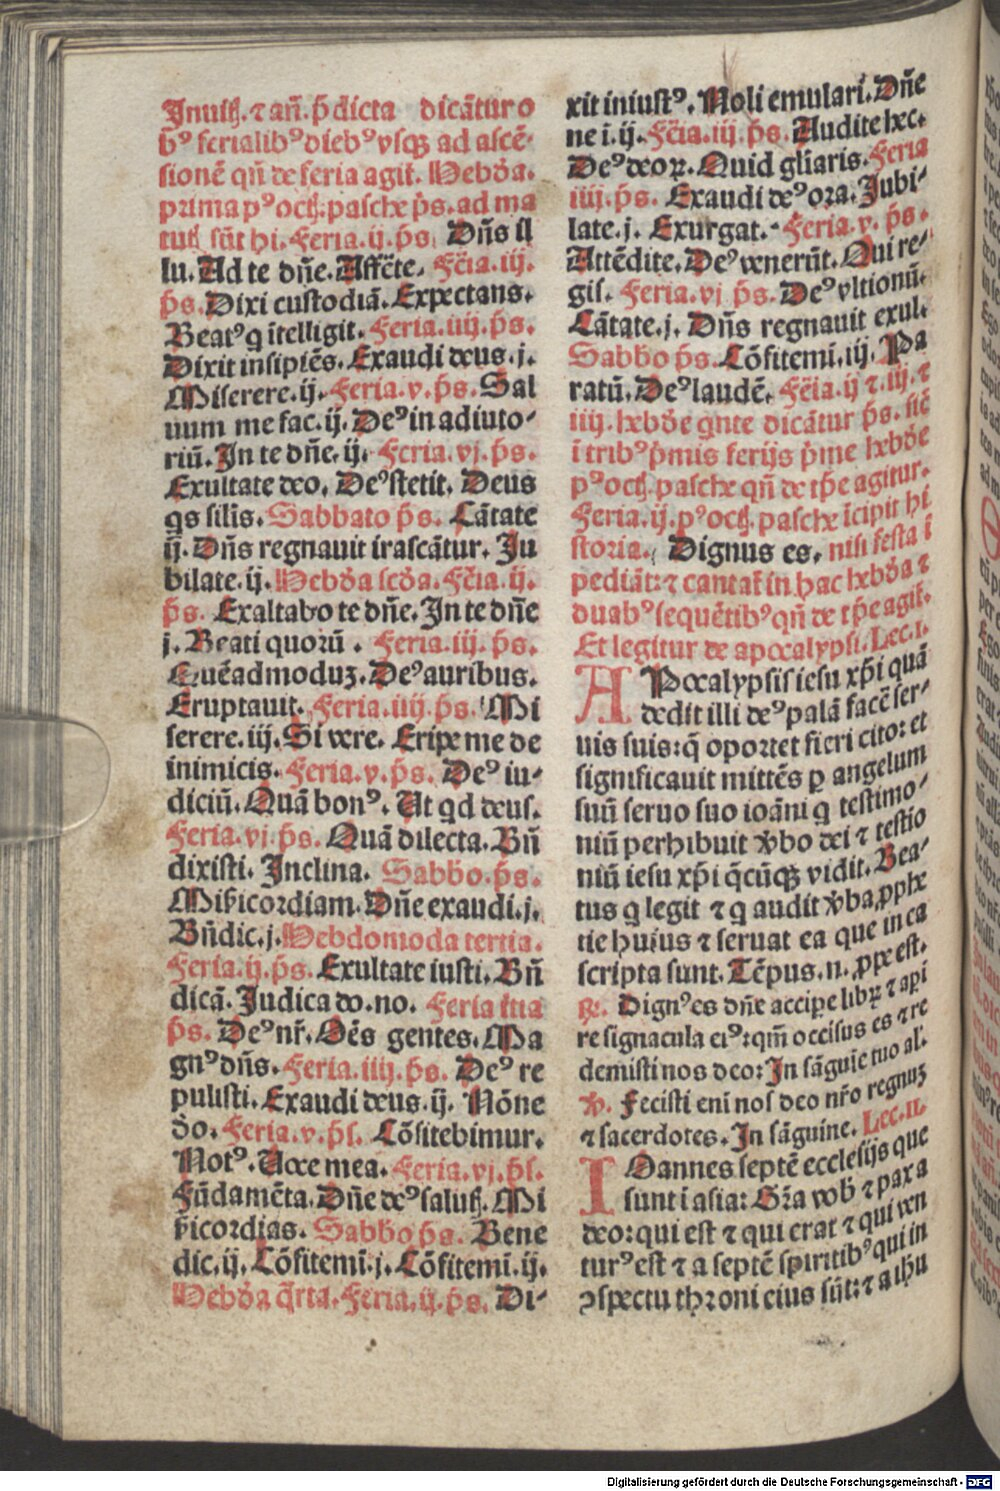 Inuitꝭ. ⁊ añ. p̄dicta dicãtur o
bꝰ ferialibꝰ diebꝰ vsqꝫ ad ascẽ-
sionẽ qñ de feria agit̃. Hebďa.
prima pꝰ octꝭ. pasche p̄s. ad ma
tutꝭ sũt hi. Feria. ij. p̄s. Dñs il
lu. Ad te dñe. Affẽte. Fẽia. iij.
p̄s. Dixi custodiã. Expectans.
Beatꝰ q ĩtelligit. Feria. iiij. p̄s.
Dixit insipiẽs. Exaudi deus. j.
Miserere. ij. Feria. v. p̄s. Sal
uum me fac. ij. Deꝰ in adiuto-
riũ. In te dñe. ij. Feria. vj. p̄s.
Exultate deo. Deꝰ stetit. Deus
qs silis. Sabbato p̄s. Cãtate
ij. Dñs regnauit irascãtur. Ju
bilate. ij. Hebďa scďa. Fẽia. ij.
p̄s. Exaltabo te dñe. In te dñe
j. Beati quorũ. Feria. iij. p̄s.
Quẽadmoduꝫ. Deꝰ auribus.
Eructauit. Feria. iiij. p̄s. Mi
serere. iij. Si vere. Eripe me de
inimicis. Feria. v. p̄s. Deꝰ iu-
diciũ. Quã bonꝰ. Ut qd deus.
Feria. vj. p̄s. Quã dilecta. Bñ
dixisti. Inclina. Sabbo. p̄s.
Miẜicordiam. Dñe exaudi. j.
Bñdic. j. Hebdomoda tertia.
Feria. ij. p̄s. Exultate iusti. Bñ
dicã. Judica do. no. Feria ĩtia
p̄s. Deꝰ nr̃. Oẽs gentes. Ma
gnꝰ dñs. Feria. iiij. p̄s. Deꝰ re
pulisti. Exaudi deus. ij. Nõne
ďo. Feria. v. p̄s. Cõfitebimur.
Notꝰ. Uoce mea. Feria. vj. p̄s.
Fũdamẽta. Dñe deꝰ salutꝭ. Mi
ẜicordias. Sabbo p̄s. Bene
dic. ij. Cõfitemĩ. j. Cõfitemĩ. ij.
Hebďa q̃rta. Feria. ij. p̄s. Di-
xit iniustꝰ. Noli emulari. Dñe
ne i. ij. Fẽia. iij. p̄s. Audite hec.
Deꝰ deoꝝ. Quid gl̃iaris. Feria
iiij. p̄s. Exaudi deꝰ ora. Jubi-
late. j. Exurgat. Feria. v. p̄s.
Attẽdite. Deꝰ venerũt. Qui re-
gis. Feria. vj p̄s. Deꝰ vltionũ.
Cãtate. j. Dñs regnauit exul.
Sabbo p̄s. Cõfitemĩ. iij. Pa
ratũ. Deꝰ laudẽ. Fẽia. ij ⁊. iij. ⁊
iiij. hebďe q̃nte dicãtur p̄s. sic̃
ĩ tribꝰ p̄mis ferijs p̄me hebďe
pꝰ octꝭ. pasche qñ de tp̃e agitur.
Feria. ij. pꝰ octꝭ. pasche ĩcipit hi
storia. Dignus es. nisi festa ĩ
pediãt: ⁊ cantat̃ in hac hebďa ⁊
duabꝰ sequẽtibꝰ qñ de tp̃e agit̃.
Et legitur de apocalypsi. Lec. i.
APocalypsis iesu xp̃i quã
dedit illi deꝰ palã facẽ ser-
uis suis: q̃ oportet fieri cito: et
significauit mittẽs ꝑ angelum
suũ seruo suo ioãni q testimo-
niũ perhibuit v̾bo dei ⁊ testio
niũ iesu xp̃i q̃cũqꝫ vidit. Bea-
tus q legit ⁊ q audit v̾ba ꝓphe
tie huius ⁊ seruat ea que in ea
scripta sunt. Tẽpus. n. ꝓpe est.
℟. Dignꝰ es dñe accipe libꝝ ⁊ api
re signacula eiꝰ: qm̃ occisus es ⁊ re
demisti nos deo: In sãguĩe tuo al.
℣. Fecisti eni nos deo nr̃o regnuꝫ
⁊ sacerdotes. In sãguine. Lec. II.
IOannes septẽ ecclesijs que
sunt ĩ asia: Gr̃a vobꝭ ⁊ pax a
deo: qui est ⁊ qui erat ⁊ qui ven
turꝰ est ⁊ a septẽ spiritibꝰ qui in
ꝯspectu throni eius sũt: ⁊ a ihu
Digitalisierung gefördert durch die Deutsche Forschungsgemeinschaft - DFG